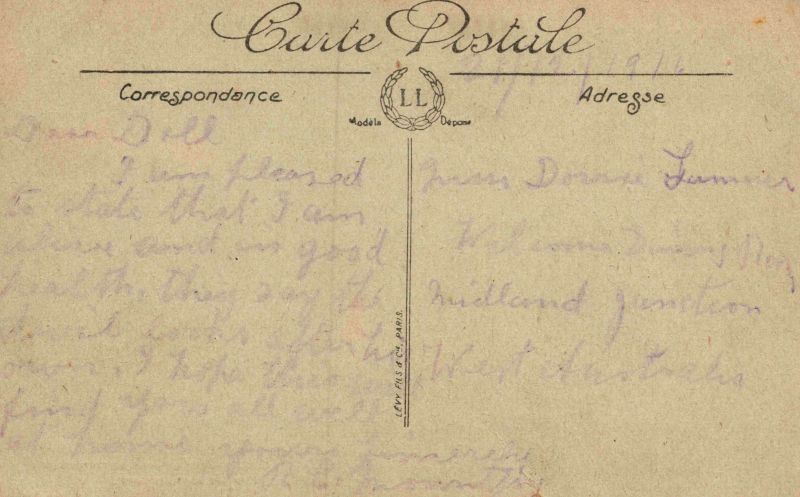 Carte Postale
1916
Correspondance
LL
Adresse
Modèle Déposé
Dear Doll
I am pleased
to state that I am
alive and in good
health, they say the
devil looks after his
own, I hope this
find you all well
at home yours sincerely
Dorrie
Welcome Dining
Midland Junction
West Australia
LÉVY FILS & Cie, PARIS.